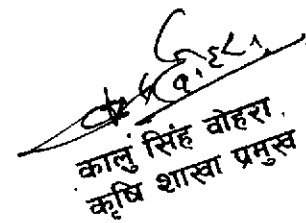 कालुं सिंह वोहरा
कृषि शाखा प्रमुख